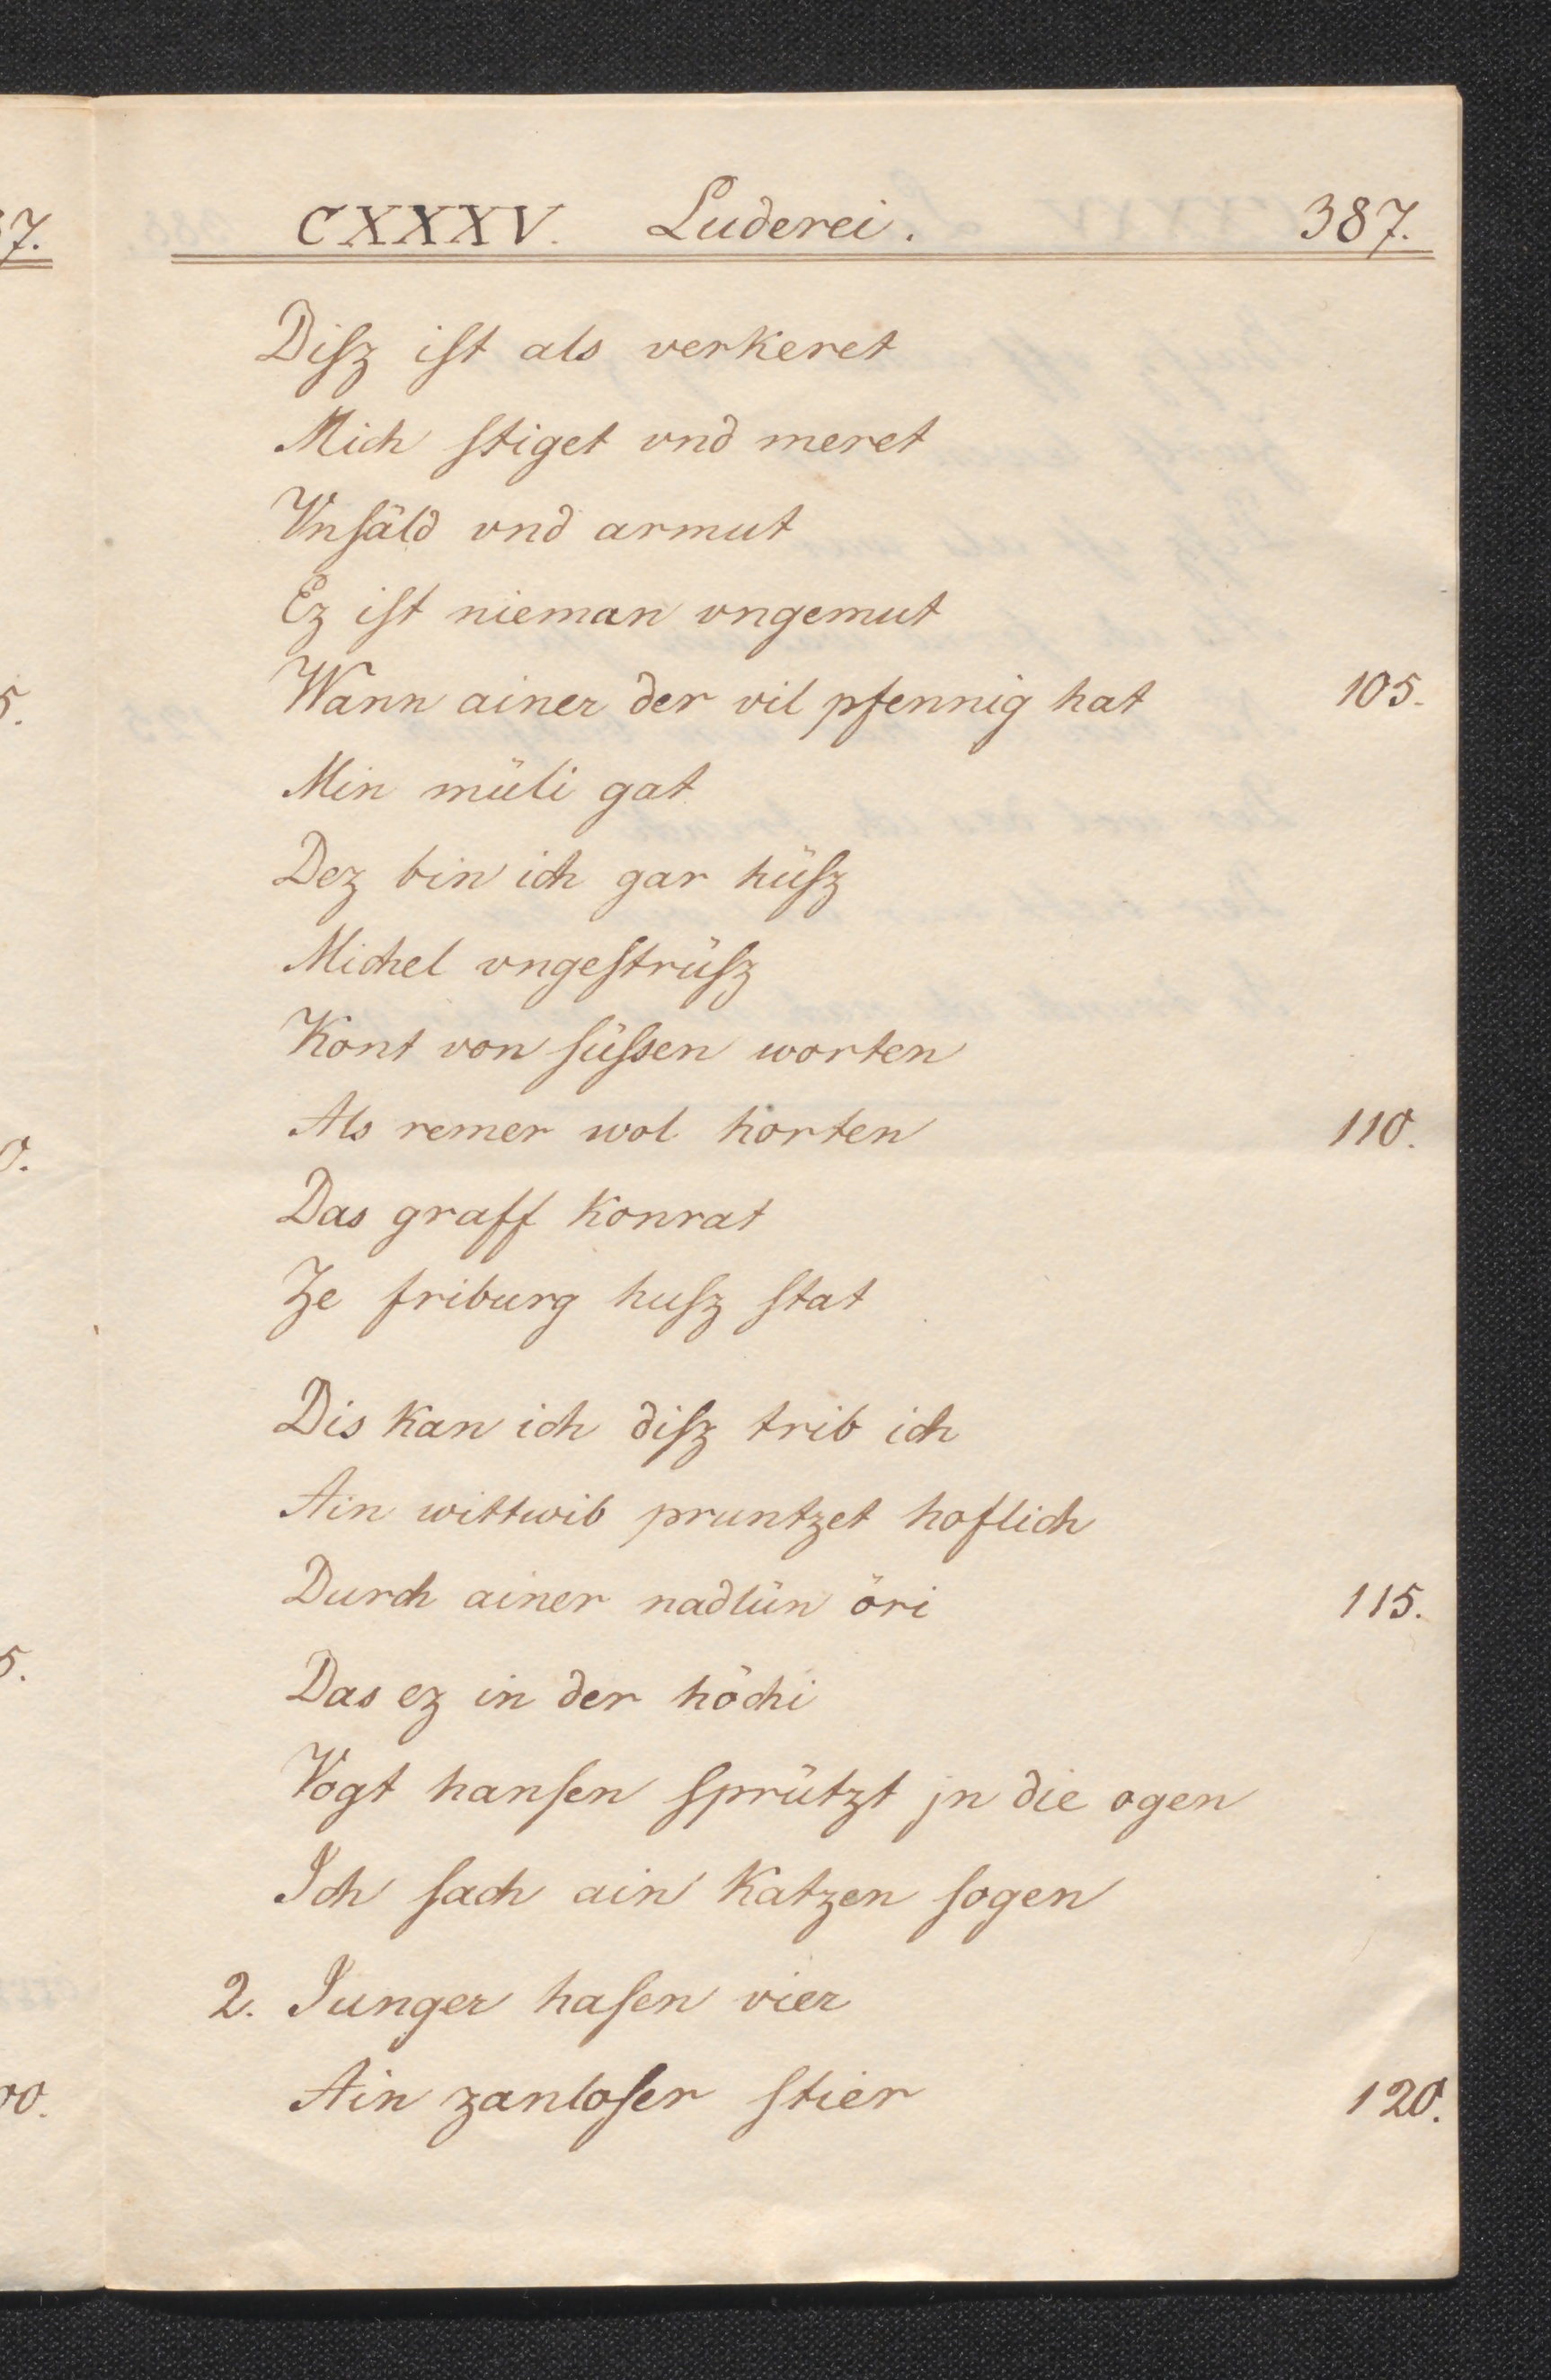 CXXXV. Luderei. 387.
Diſz iſt als verkeret
Mich ſtiget vnd meret
Vnſäld vnd armut
Ez iſt nieman vngemut
Wann ainer der vil pfennig hat 105.
Min müli gat
Dez bin ich gar hüſz
Michel vngeſtrüſz
Kont von ſüſsen worten
Als remer wol horten 110.
Das graff Konrat
Ze friburg huſz ſtat
Dis kan ich diſz trib ich
Ain wittwib pruntzet hoflich
Durch ainer nadlün öri 115.
Das ez in der höchi
Vogt hanſen ſprützt jn die ogen
Ich ſach ain Katzen ſogen
2. Junger haſen vier
Ain zanloſer ſtier 120.